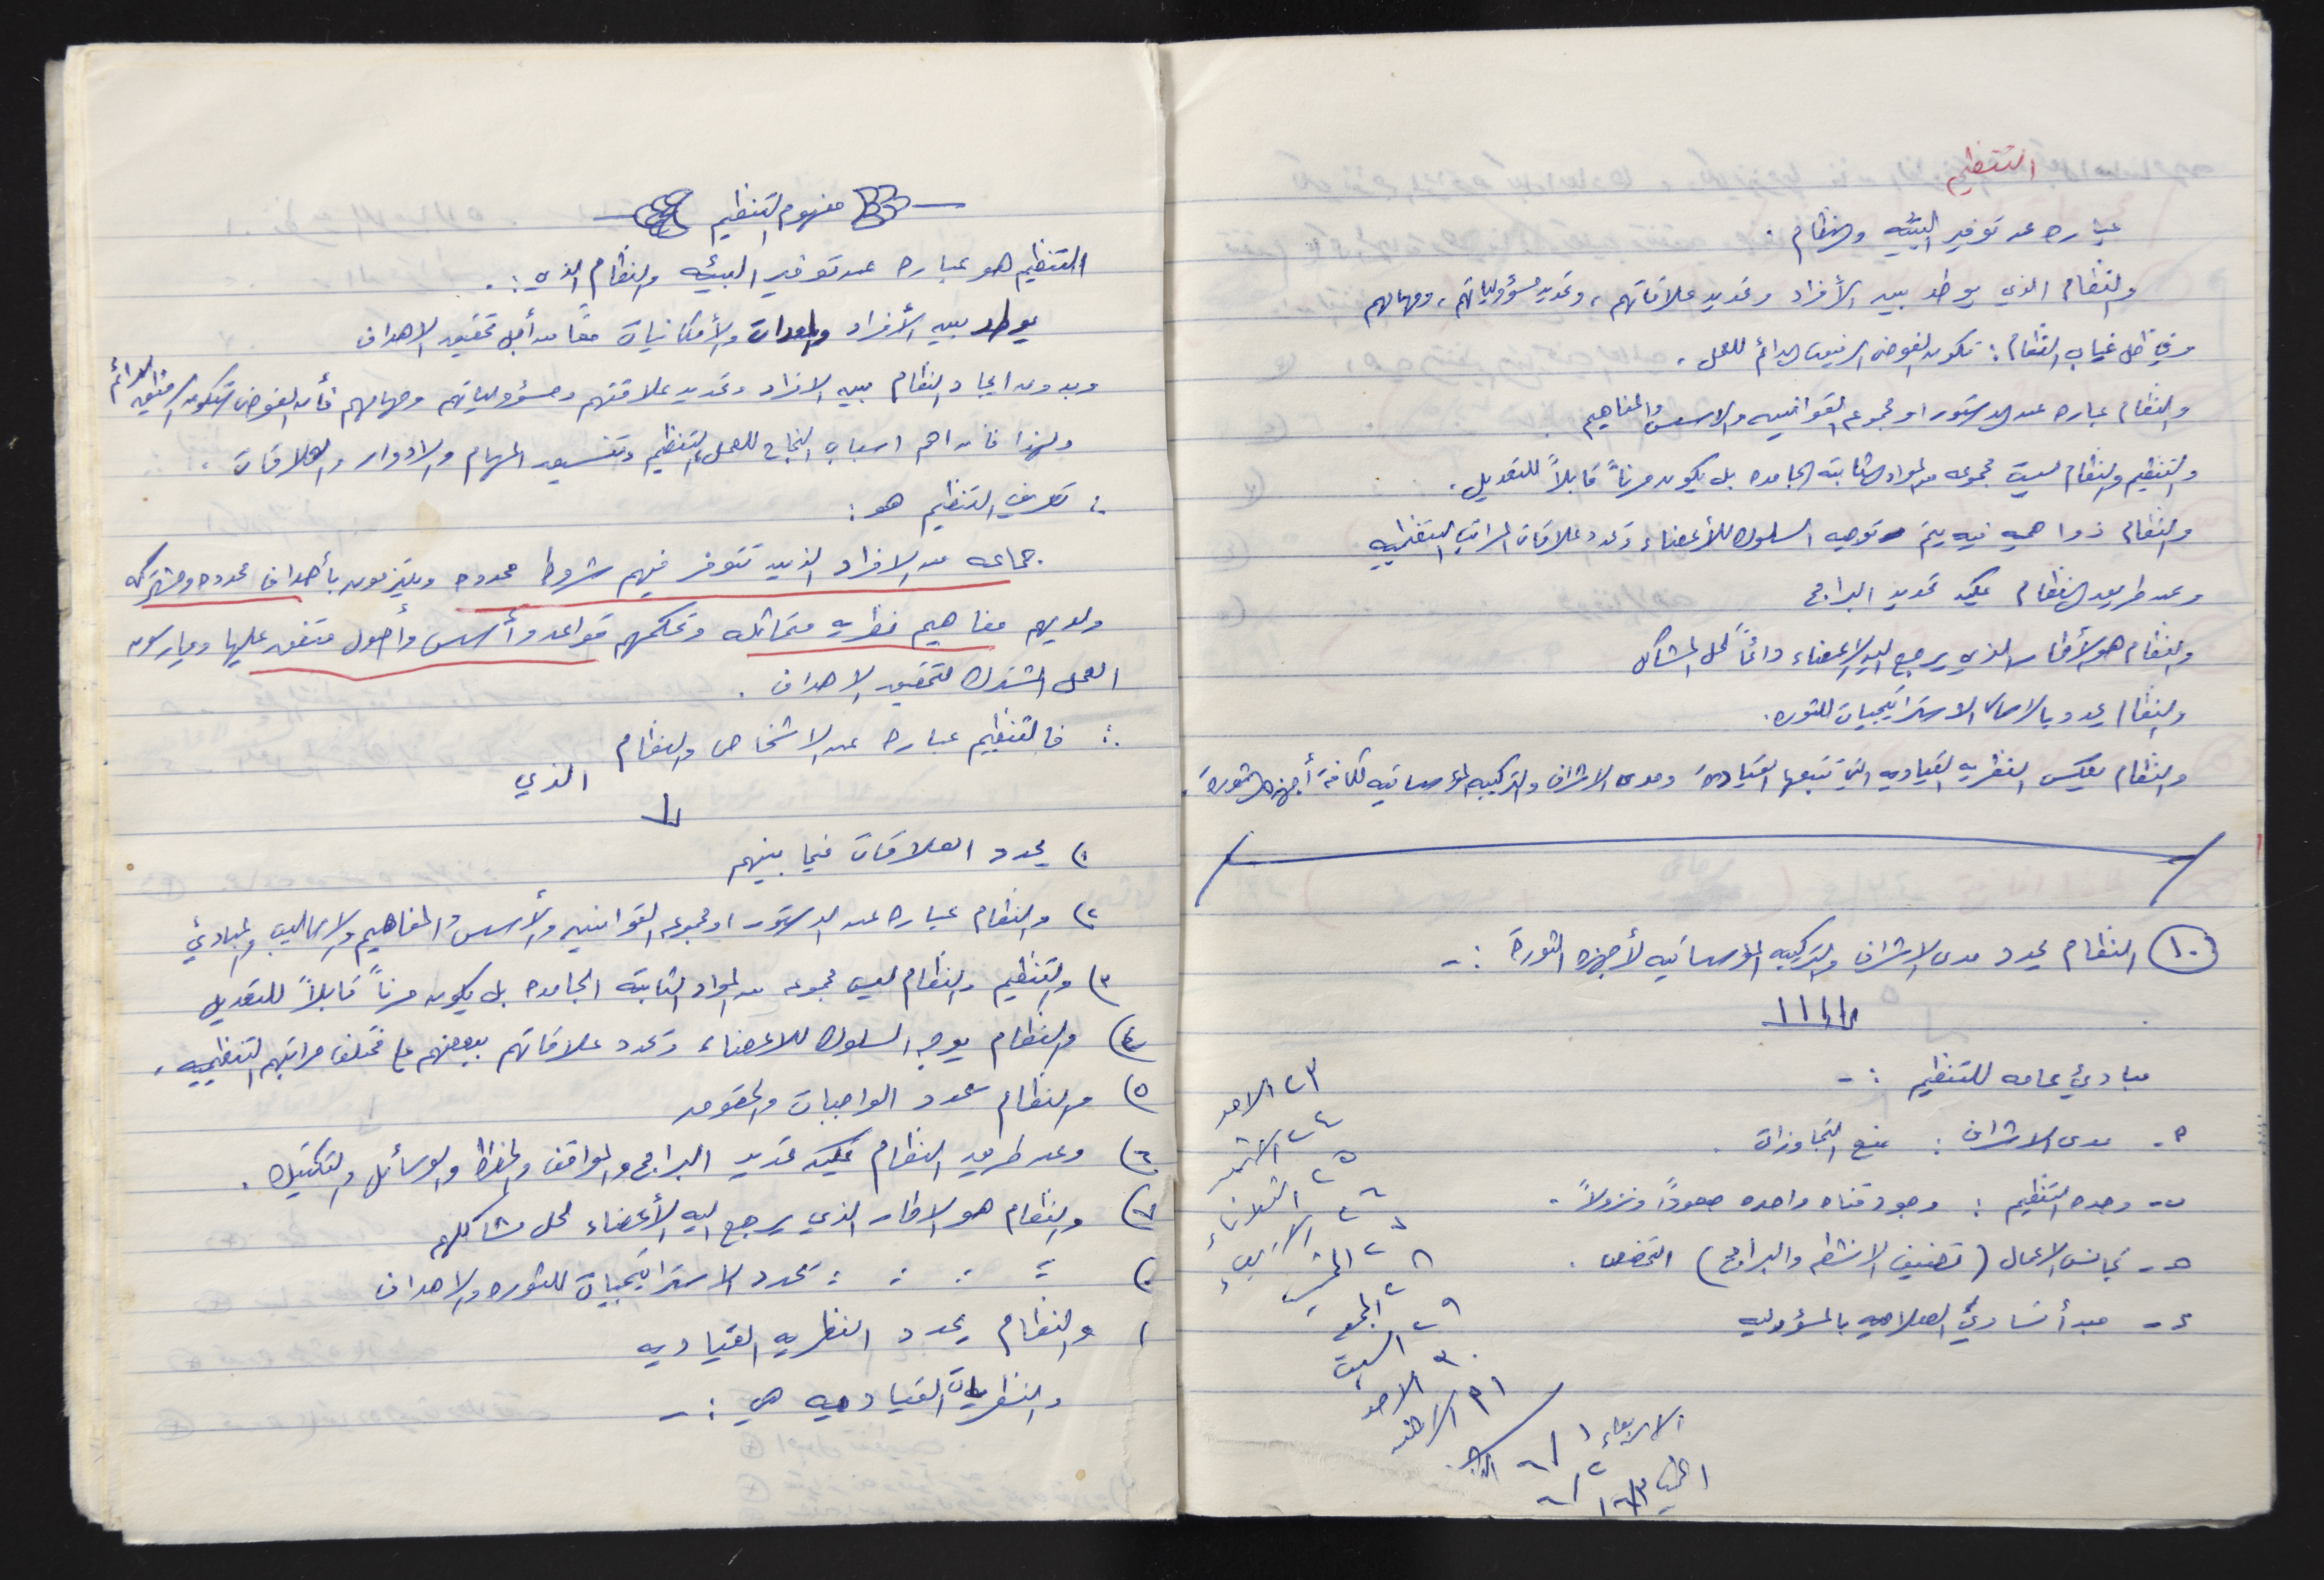 التنظيم
عباره عن توفير البيئه والنظام .
والنظام الذي يوطد بين الأفراد وتحديد علاقاتهم ، وتحديد مسؤولياتهم ، ومهامهم
وفي ظل غياب النظام : تكون الفوضى الرفيق الدائم للعمل .
والنظام عباره عن الدستور او مجموعه القوانين والاسس والمفاهيم .
والتنظيم والنظام ليست مجموعه من المواد الثابته الجامده بل يكون مرناً قابلاً للتعديل .
والنظام ذو اهميه فيه يتم توجيه السلوك للأعضاء وتحدد علاقات المراتب التنظيميه
وعن طريق النظام يمكن تحديد البرامج
والنظام هو الأطار الذي يرجع اليه الاعضاء دائماً لحل المشاكل
والنظام يحدد بالاساس الاستراتيجيات للثوره .
والنظام يعكس النظريه القياديه التي تتبعها القيادة ومدى الاشراف والتركيبه المؤسساتيه لكافة أجهزه الثورة .
١٠ النظام يحدد مدى الاشراف والتركيبه المؤسساتيه لأجهزه الثورة :-
مبادئ عامه للتنظيم :-
٢ـ مدى الاشراف : منع التجاوزات .
ب- وحده التنظيم : وجود قناه واحده صعوداً ونزولاً .
ه- تجانس الاعمال ( تصنيف الانشطه والبرامج ) التخصص .
ء - مبدأ تساوي الصلاحيه بالمسؤوليه
٢٣ الاحد
٢٤ الاثنين
٢٥ الثلاثاء
٢٦ الاربعاء
٢٨ الجمعه
٢٩ السبت
٣٠ الاحد
٣١ الاثنين
الاربعاء
مفهوم التنظيم
التنظيم هو عباره عن توفير البيئه والنظام الذي : .
يوطد بين الأفراد والمعدات والأمكانيات معاً من أجل تحقيق الاهداف
وبدون ايجاد النظام بين الافراد وتحديد علاقتهم ومسؤولياتهم ومهامهم فأن الفوضى ستكون الرفيق الدائم
ولهذا فان اهم اسباب النجاح للعمل التنظيم وتنسيق المهام والادوار والعلاقات .
∴ تعريف التنظيم هو :
جماعه من الافراد الذين تتوفر فيهم شروط محدده ويلتزمون بأهداف محدده ومشتركه
ولديهم مفاهيم نظريه متماثله وتحكمهم قواعد وأسس وأصول متفق عليها ويمارسون
العمل المشترك لتحقيق الاهداف .
∴ فالتنظيم عباره عن الاشخاص والنظام الذي
١) يحدد العلاقات فيما بينهم
٢) والنظام عباره عن الدستور او مجموعه القوانين والأسس والمفاهيم والاساليب والمبادئ
٣) والتنظيم والنظام ليس مجموعه من المواد الثابته الجامده بل يكون مرناً قابلاً للتعديل
٤) والنظام يوجه السلوك للاعضاء وتحدد علاقاتهم ببعضهم على مختلف مراتبهم التنظيميه .
٥) والنظام يحدد الواجبات والحقوق
٦) وعن طريق النظام يمكن تحديد البرامج والمواقف والخطط والوسائل والتكتيك .
٧) والنظام هو الاطار الذي يرجع اليه الأعضاء لحل مشاكلهم
: : : تحدد الاستراتيجيات للثوره والاهداف
والنظام يحدد النظريه القياديه
والنظريات القياديه هي :-